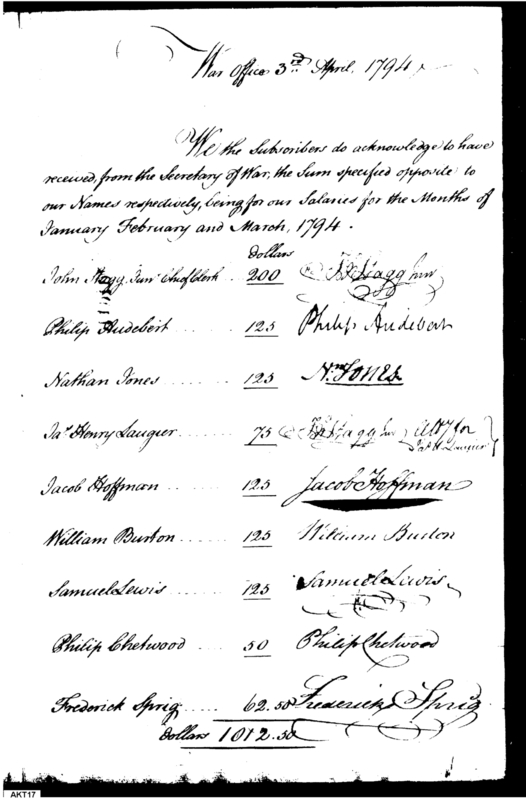 War Office 3rd April, 1794
We the Subscribers do acknowledge to have
received, from the Secretary of War, the Sum specified opposite to
our Names respectively, being for our Salaries for the Months of
January February and March, 1794.
dollars
John Stagg Junr Chief Clerk - 200 Jn Stagg Junr
Philip Audebert ..... 125 Philip Audebert
Nathan Jones ....... 125 Nn Jones.
Jas Henry Laugier ...... 75 Jn Stagg Junr Atty for
Jas H. Laugier
Jacob Hoffman ...... 125 Jacob Hoffman
William Burton ..... 125 William Burton
Samuel Lewis ...... 125 Samuel Lewis
Philip Chetwood .... 50 Philip Chetwood
Frederick Sprig .... 62.50 Frederick Sprig
dollars 1012.50
AKT17